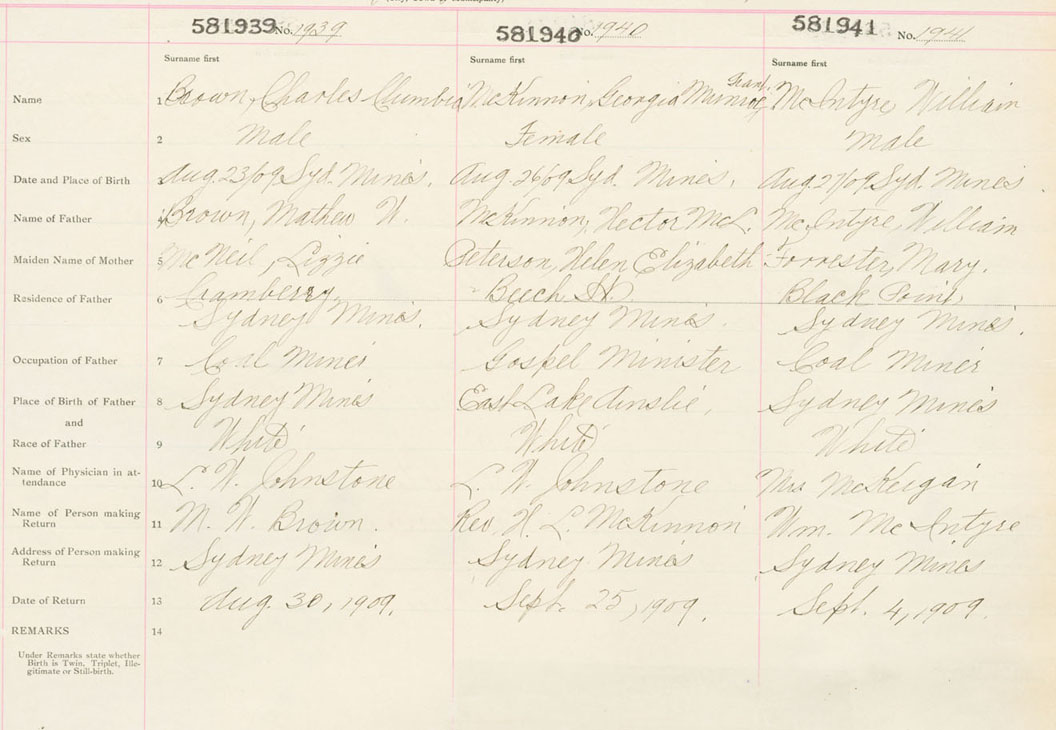 581939 No. 1939 581940 No. 1940 581941 No. 1941
Surname first Surname first Surname first
Name 1 Brown, Charles McKinnon, Georgia Munroe McIntyre, William
Sex 2 Male Female Male
Date and Place of Birth 3 Aug. 23/09 Syd. Mines. Aug. 26/09 Syd. Mines. Aug. 27/09 Syd. Mines.
Name of Father 4 Brown, Mathew W. McKinnon, Hector McL. McIntyre, William
Maiden Name of Mother 5 McNeil, Lizzie Peterson, Helen Elizabeth Forrester, Mary.
Residence of Father 6 Cramberry, Beech St. Black Point,
Sydney Mines. Sydney Mines. Sydney Mines.
Occupation of Father 7 Coal Miner Gospel Minister Coal Miner
Place of Birth of Father 8 Sydney Mines East Lake Ainslie, Sydney Mines
and
Race of Father 9 White White White
Name of Physician in at-
tendance 10 L. W. Johnstone L. W. Johnstone Mrs McKeigan
Name of Person making
Return 11 M. W. Brown. Rev. H. L. McKinnon Wm. McIntyre
Address of Person making
Return 12 Sydney Mines Sydney Mines Sydney Mines
Date of Return 13 Aug. 30, 1909. Sept. 25, 1909. Sept. 4, 1909.
REMARKS 14
Under Remarks state whether
Birth is Twin, Triplet, Ille-
gitimate or Still-birth.